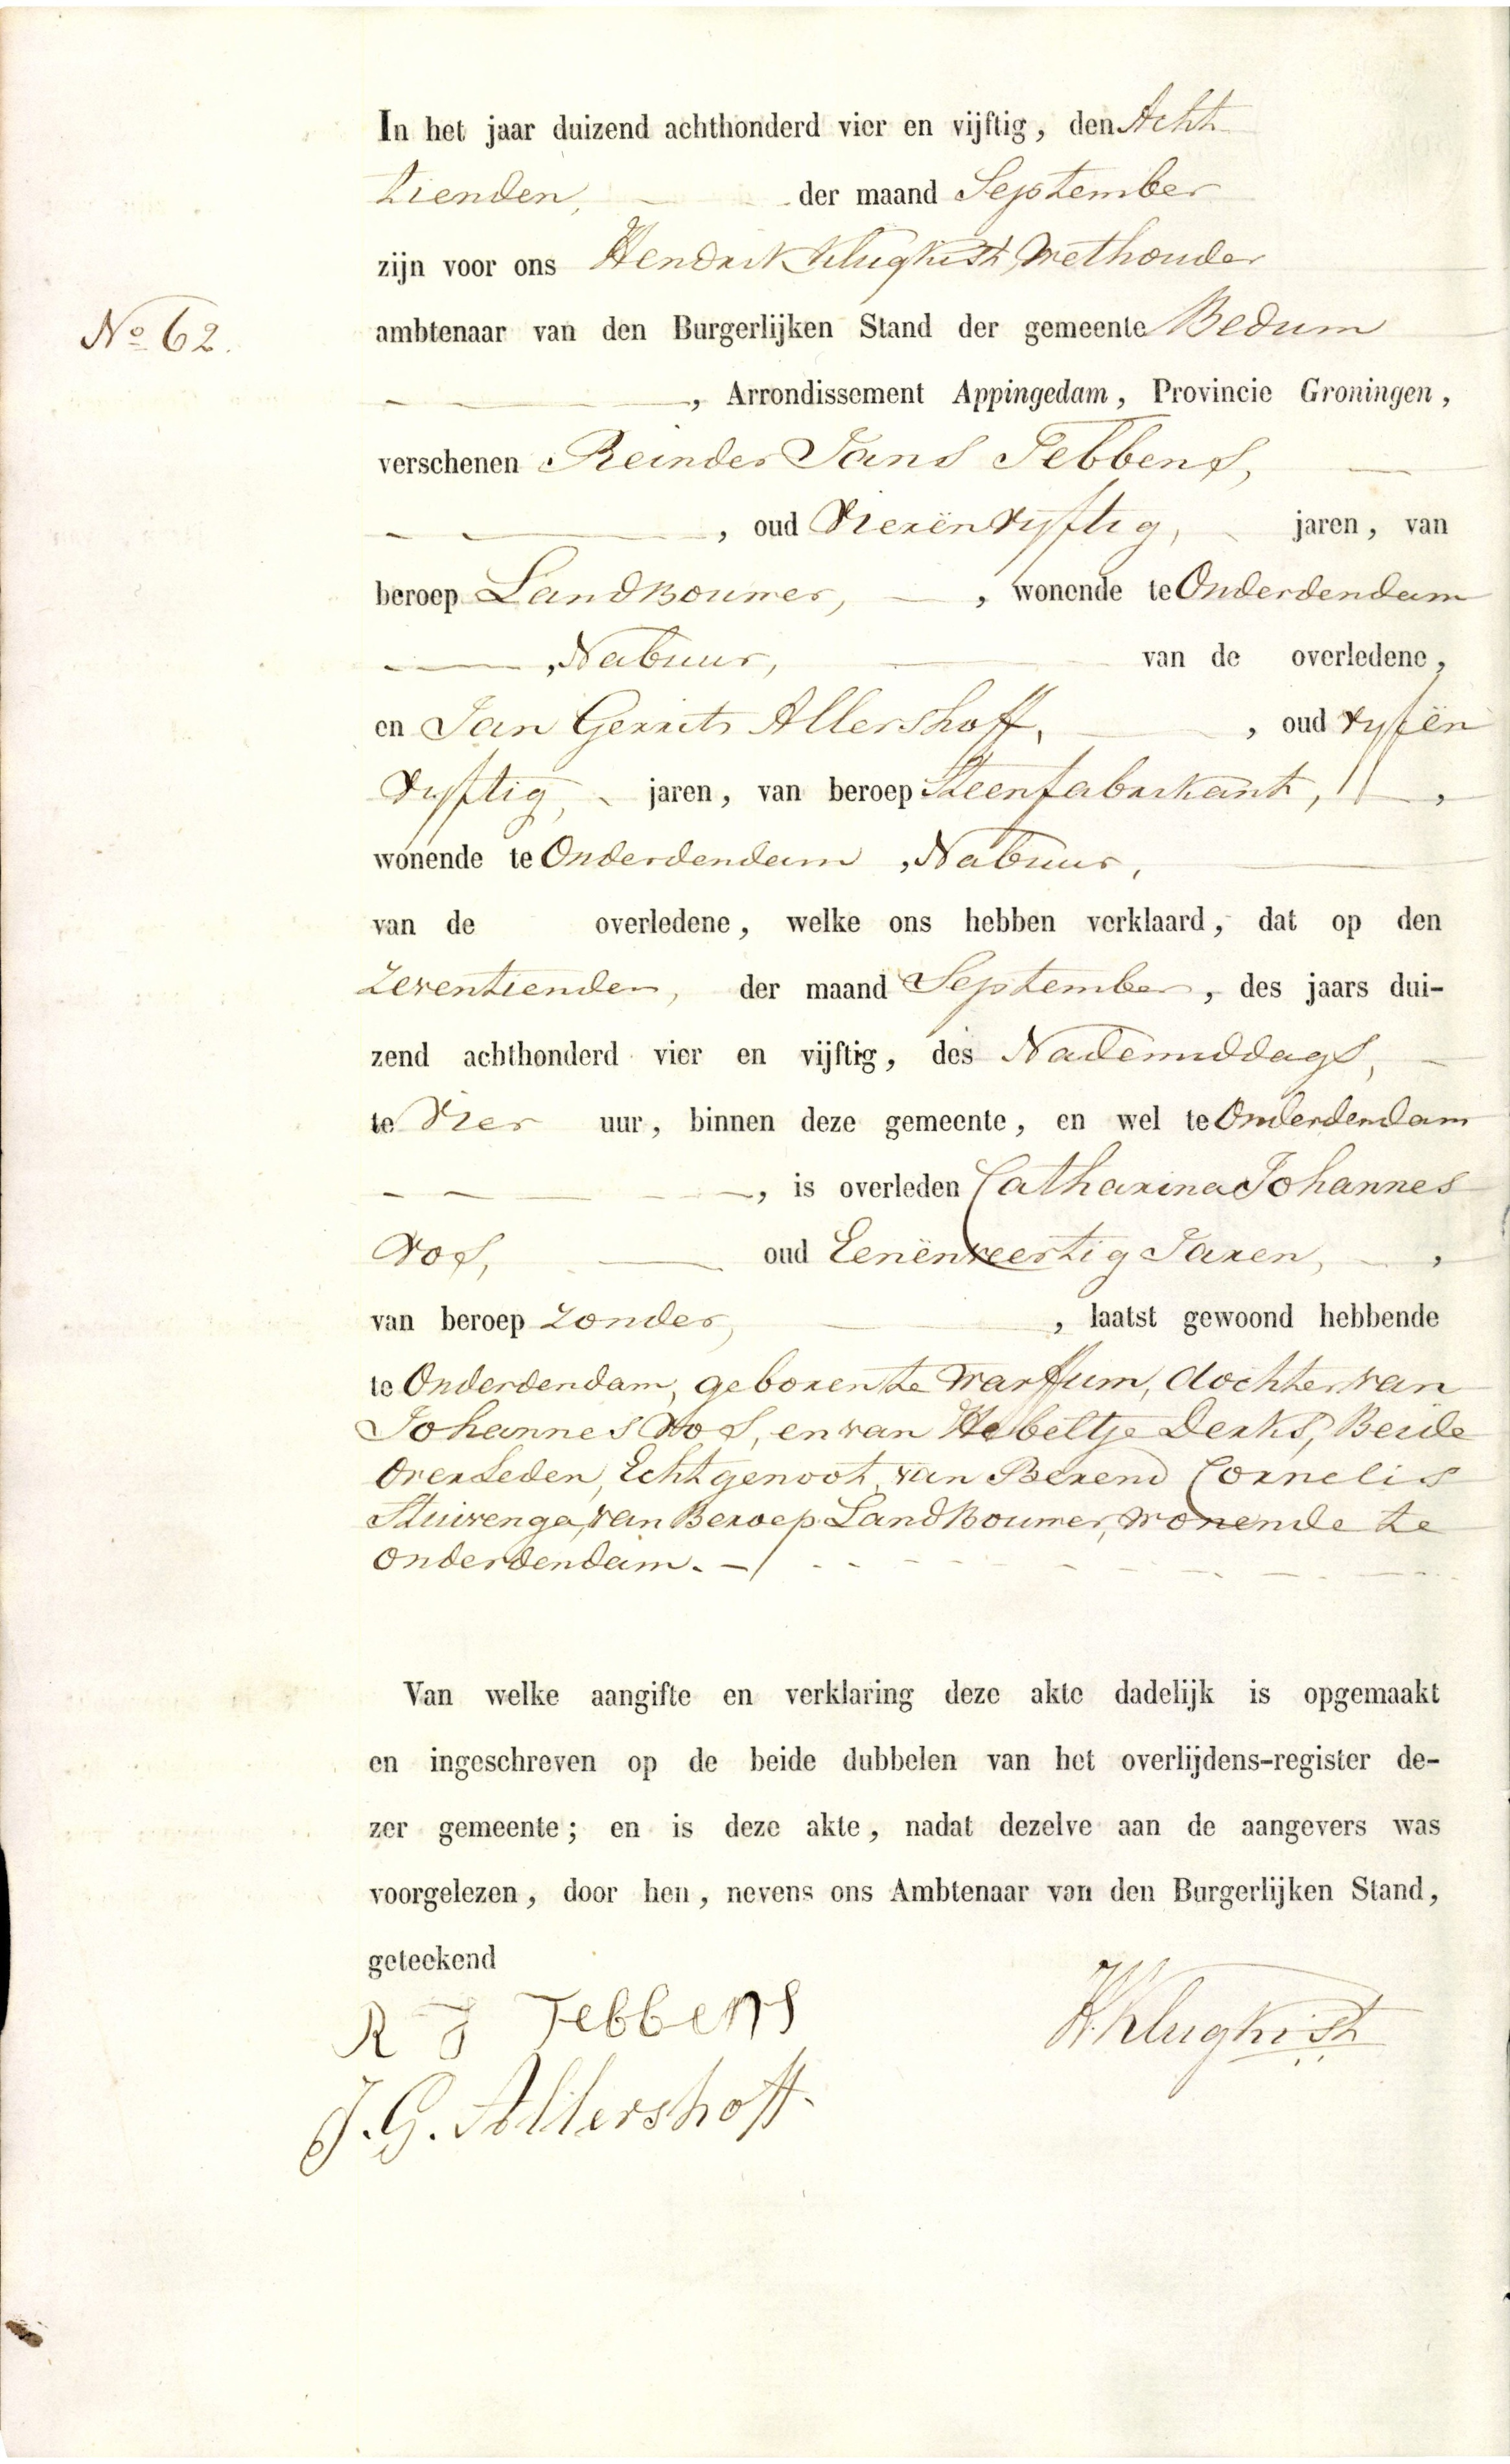 In het jaar duizend achthonderd vier en vijftig, den Acht
tienden, der maand September
zijn voor ons Hendrik Klugkist, Wethouder
No 62.
ambtenaar van den Burgerlijken Stand der gemeente Bedum
, Arrondissement Appingedam, Provincie Groningen,
verschenen Reinder Jans Tebbens,
, oud Vierënvyftig, jaren, van
beroep Landbouwer, , wonende te Onderdendam
, Nabuur, van de overledene,
en Jan Gerrits Allershoff, , oud vyfën
vyftig, jaren, van beroep Steenfabrikant, ,
wonende te Onderdendam , Nabuur,
van de overledene, welke ons hebben verklaard, dat op den
Zeventienden, der maand September, des jaars dui-
zend achthonderd vier en vijftig, des Nademiddags,
te Vier uur, binnen deze gemeente, en wel te Onderdendam
, is overleden Catharina Johannes
Vos, oud Eenënveertig Jaren, ,
van beroep Zonder, , laatst gewoond hebbende
te Onderdendam, geboren te Warffum, dochter van
Johannes Vos, en van Hebeltje Derks, Beide
Overleden, Echtgenoot van Berend Cornelis
Stuivenga, van Beroep Landbouwer, wonende te
Onderdendam. -/
Van welke aangifte en verklaring deze akte dadelijk is opgemaakt
en ingeschreven op de beide dubbelen van het overlijdens-register de-
zer gemeente; en is deze akte, nadat dezelve aan de aangevers was
voorgelezen, door hen, nevens ons Ambtenaar van den Burgerlijken Stand,
geteekend
R J Tebbens
H. Klugkist
J. G. Allershoff